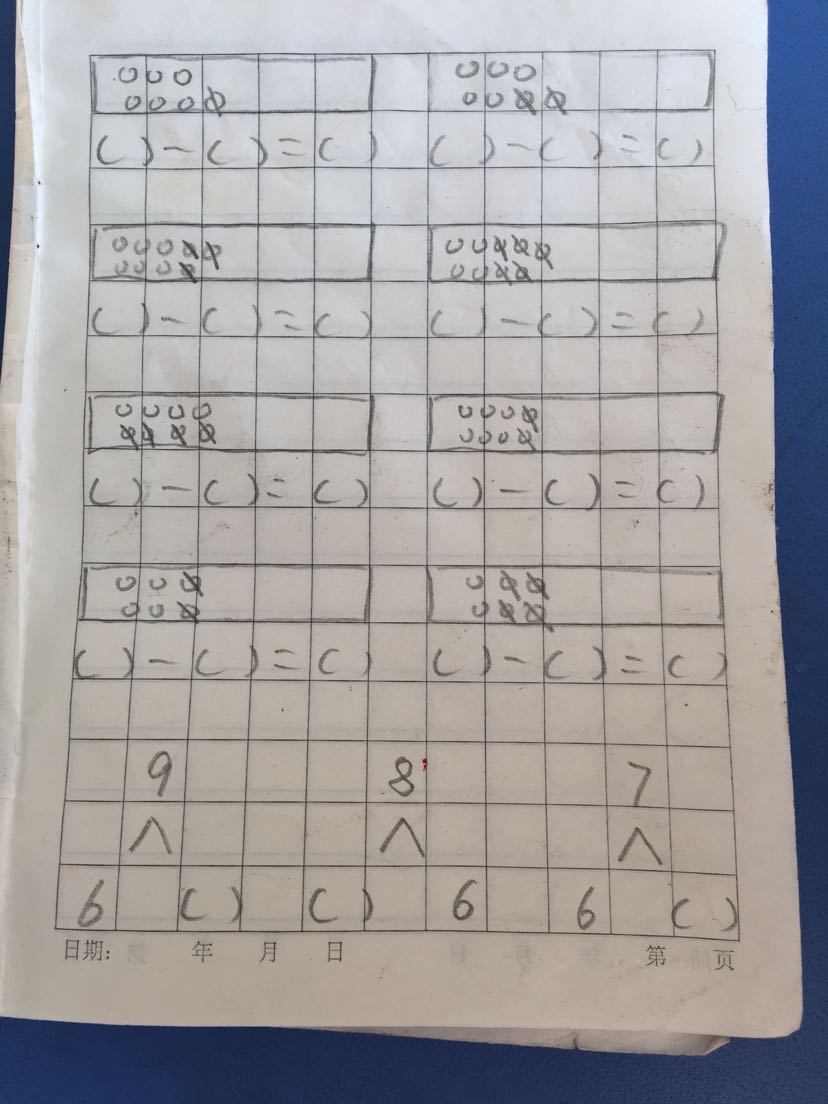 ( ) － ( ) = ( ) ( ) － ( ) = ( )
( ) － ( ) = ( ) ( ) － ( ) = ( )
( ) － ( ) = ( ) ( ) － ( ) = ( )
( ) － ( ) = ( ) ( ) － ( ) = ( )
9 8 7
∧ ∧ ∧
6 ( ) ( ) 6 6 ( )
日期: 年 月 日 第 页